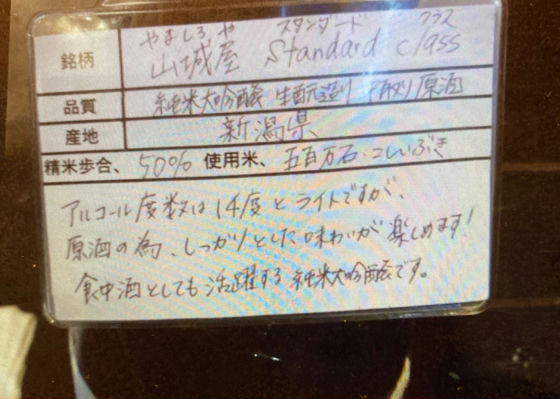 やましろや スタンダード クラス
銘柄 山城屋 Standard class
品質 純米大吟醸 生酛造り 原酒
産地 新潟県
精米歩合、50% 使用米、五百万石・こしいぶき
アルコール度数は14度とライトですが、
原酒の為、しっかりとした味わいが楽しめます!
食中酒としても活躍する純米大吟醸です。